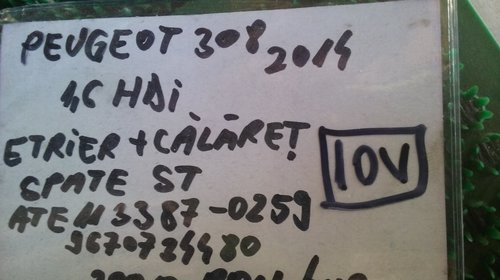 PEUGEOT 308 2014
1,6 HDi
ETRIER + CĂLĂREȚ
SPATE ST
IOV
ATE 113387-0259
9670724480